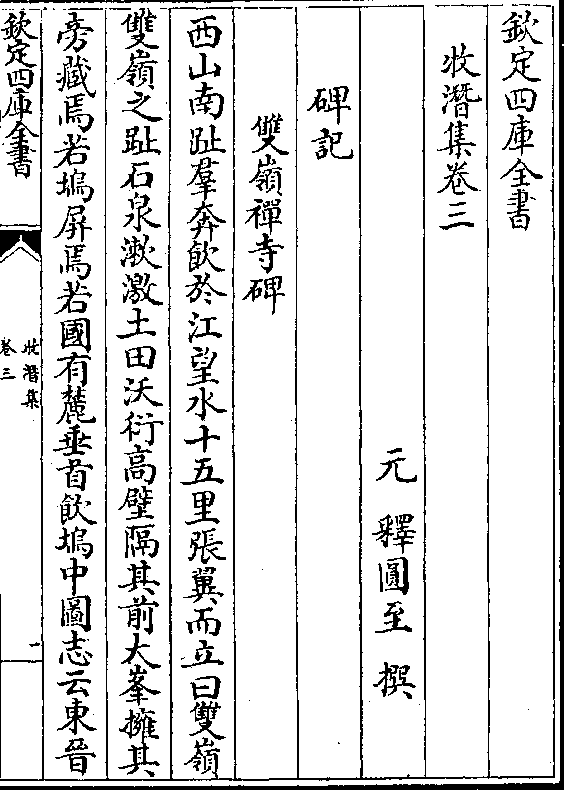 欽定四庫全書
牧潛集卷三
元 釋圓至 撰
碑記
雙嶺禪寺碑
西山南趾羣奔飲於江望水十五里張翼而立曰雙嶺
雙嶺之趾石泉漱激土田沃衍高壁隔其前大峯擁其
旁藏焉若塢屏焉若國有麓垂首飲塢中圖志云東晉
欽定四庫全書
牧潛集
卷三
一